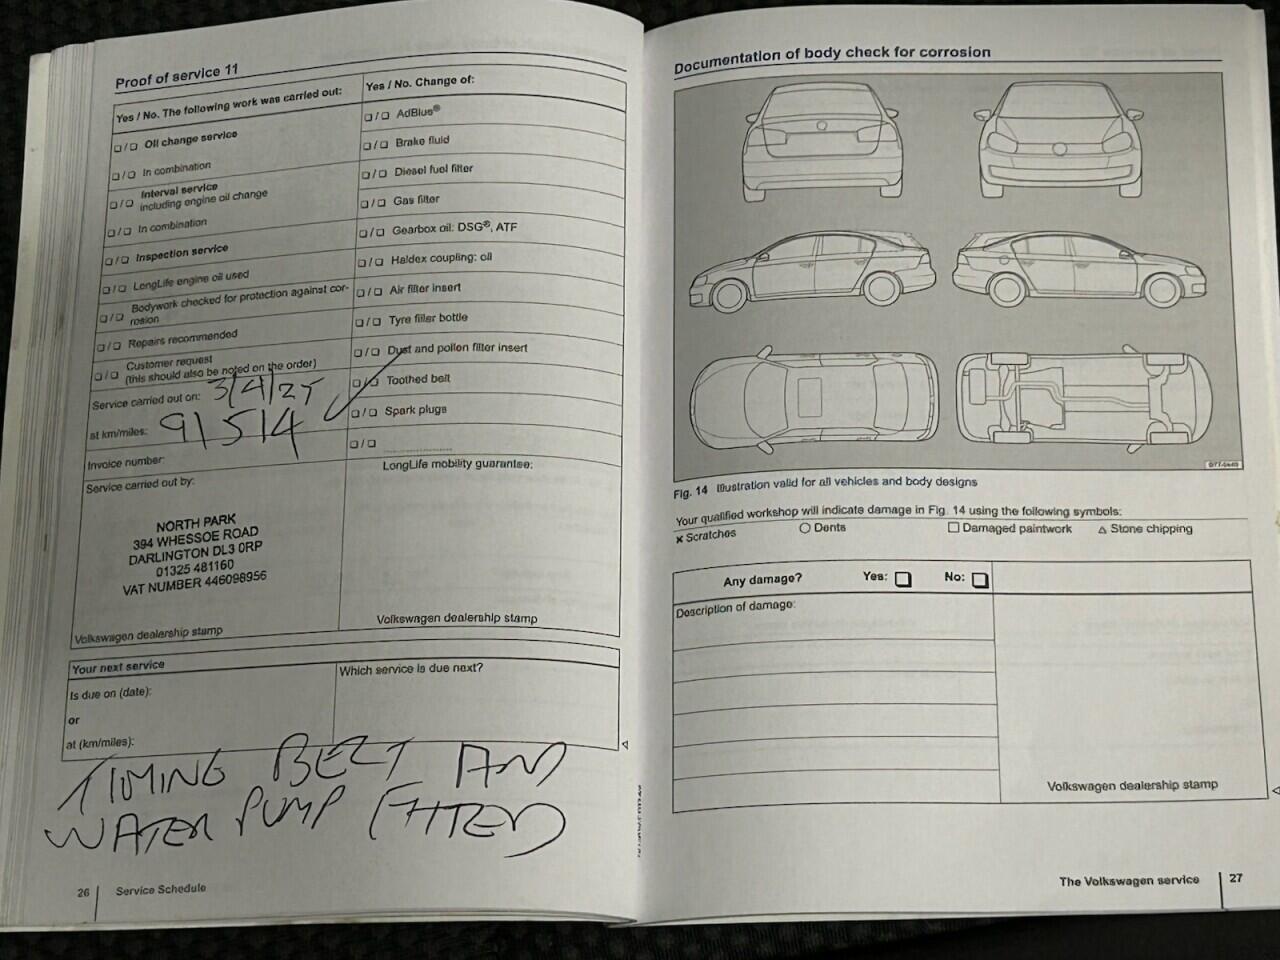 Proof of service 11
Yes / No. The following work was carried out:
☐/☐ Oil change service
☐/☐ In combination
☐/☐ Interval service
including engine oil change
☐/☐ In combination
☐/☐ Inspection service
☐/☐ LongLife engine oil used
☐/☐ Bodywork checked for protection against cor-
rosion
☐/☐ Repairs recommended
☐/☐ Customer request
(this should also be noted on the order)
Service carried out on: 3/4/25
at km/miles: 91514
Invoice number:
Service carried out by:
NORTH PARK
394 WHESSOE ROAD
DARLINGTON DL3 0RP
01325 481160
VAT NUMBER 446098956
Volkswagen dealership stamp
Yes / No. Change of:
☐/☐ AdBlue®
☐/☐ Brake fluid
☐/☐ Diesel fuel filter
☐/☐ Gas filter
☐/☐ Gearbox oil: DSG®, ATF
☐/☐ Haldex coupling: oil
☐/☐ Air filter insert
☐/☐ Tyre filler bottle
☐/☐ Dust and pollen filter insert
☐/☐ Toothed belt
☐/☐ Spark plugs
☐/☐
LongLife mobility guarantee:
Volkswagen dealership stamp
Your next service
Is due on (date):
or
at (km/miles):
Which service is due next?
TIMING BELT AND
WATER PUMP FITTED
26 Service Schedule
Documentation of body check for corrosion
Fig. 14 Illustration valid for all vehicles and body designs
Your qualified workshop will indicate damage in Fig. 14 using the following symbols:
✗ Scratches ○ Dents ☐ Damaged paintwork △ Stone chipping
Any damage? Yes: ☐ No: ☐
Description of damage:
Volkswagen dealership stamp
The Volkswagen service 27